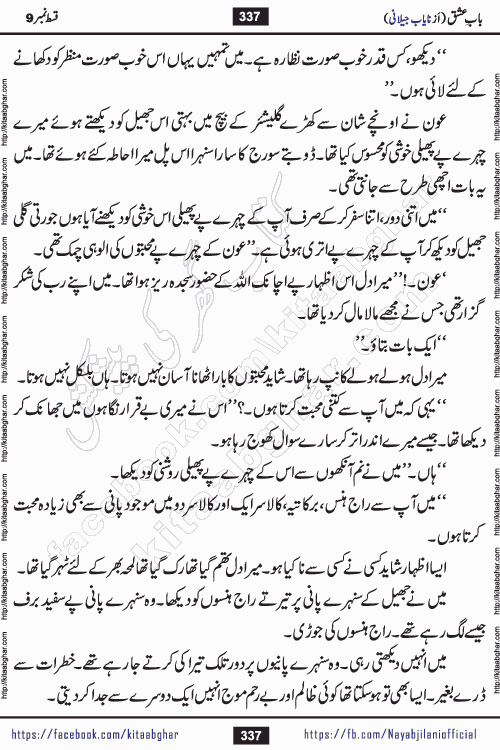 باب عشق (از نایاب جیلانی)
337
قسط نمبر 9
‘‘دیکھو، کس قدر خوب صورت نظارہ ہے۔ میں تمہیں یہاں اس خوب صورت منظر کو دکھانے
کے لئے لائی ہوں۔’’
عون نے اونچے شان سے کھڑے گلیشئر کے بیچ میں بہتی اس جھیل کو دیکھتے ہوئے میرے
چہرے پے پھیلی خوشی کو محسوس کیا تھا۔ ڈوبتے سورج کا سارا سنہرا اس پل میرا احاطہ کئے ہوئے تھا۔ میں
یہ بات اچھی طرح سے جانتی تھی۔
‘‘میں اتنی دور، اتنا سفر کر کے صرف آپ کے چہرے پے پھیلی اس خوشی کو دیکھنے آیا ہوں جو رتی گلی
جھیل کو دیکھ کر آپ کے چہرے پے اتری ہوئی ہے۔’’عون کے چہرے پے محبتوں کی الوہی چمک تھی۔
‘عون۔!’’میرا دل اس اظہار پے اچانک اللہ کے حضور سجدہ ریز ہوا تھا۔ میں اپنے رب کی شکر
گزار تھی جس نے مجھے مالا مال کر دیا تھا۔
‘‘ایک بات بتاؤ۔’’
میرا دل ہولے ہولے کانپ رہا تھا۔ شاید محبتوں کا بار اٹھانا آسان نہیں ہوتا۔ ہاں بلکل نہیں ہوتا۔
‘‘یہی کہ میں آپ سے کتنی محبت کرتا ہوں۔؟’’اس نے میری بے قرار نگاہوں میں جھانک کر
دیکھا تھا۔ جیسے میرے اندر اتر کر سارے سوال کھوج رہا ہو۔
‘‘ہاں۔’’میں نے نم آنکھوں سے اس کے چہرے پے پھیلی روشنی کو دیکھا۔
‘‘میں آپ سے راج ہنس، برکاتیہ، کالا سر ایک اور کالا سر دو میں موجود پانی سے بھی زیادہ محبت
کرتا ہوں۔
ایسا اظہار شاید کسی نے کسی سے نا کیا ہو۔ میرا دل تھم گیا تھا رک گیا تھا لمحہ بھر کے لئے ٹہر گیا تھا۔
میں نے جھیل کے سنہرے پانی پر تیرتے راج ہنسوں کو دیکھا۔ وہ سنہرے پانی پے سفید برف
جیسے لگ رہے تھے۔ راج ہنسوں کی جوڑی۔
میں انہیں دیکھتی رہی۔ وہ سنہرے پانیوں پر دور تلک تیرا کی کرتے جا رہے تھے۔ خطرات سے
ڈرے بغیر۔ ایسا بھی تو ہو سکتا تھا کوئی ظالم اور بے رحم موج انہیں ایک دوسرے سے جدا کر دیتی۔
https://facebook.com/kitaabghar
337
https://fb.com/Nayabjilaniofficial
http://kitaabghar.com
کتاب گھر کی پیشکش
facebook.com/kitaabghar
kitaabghar.com